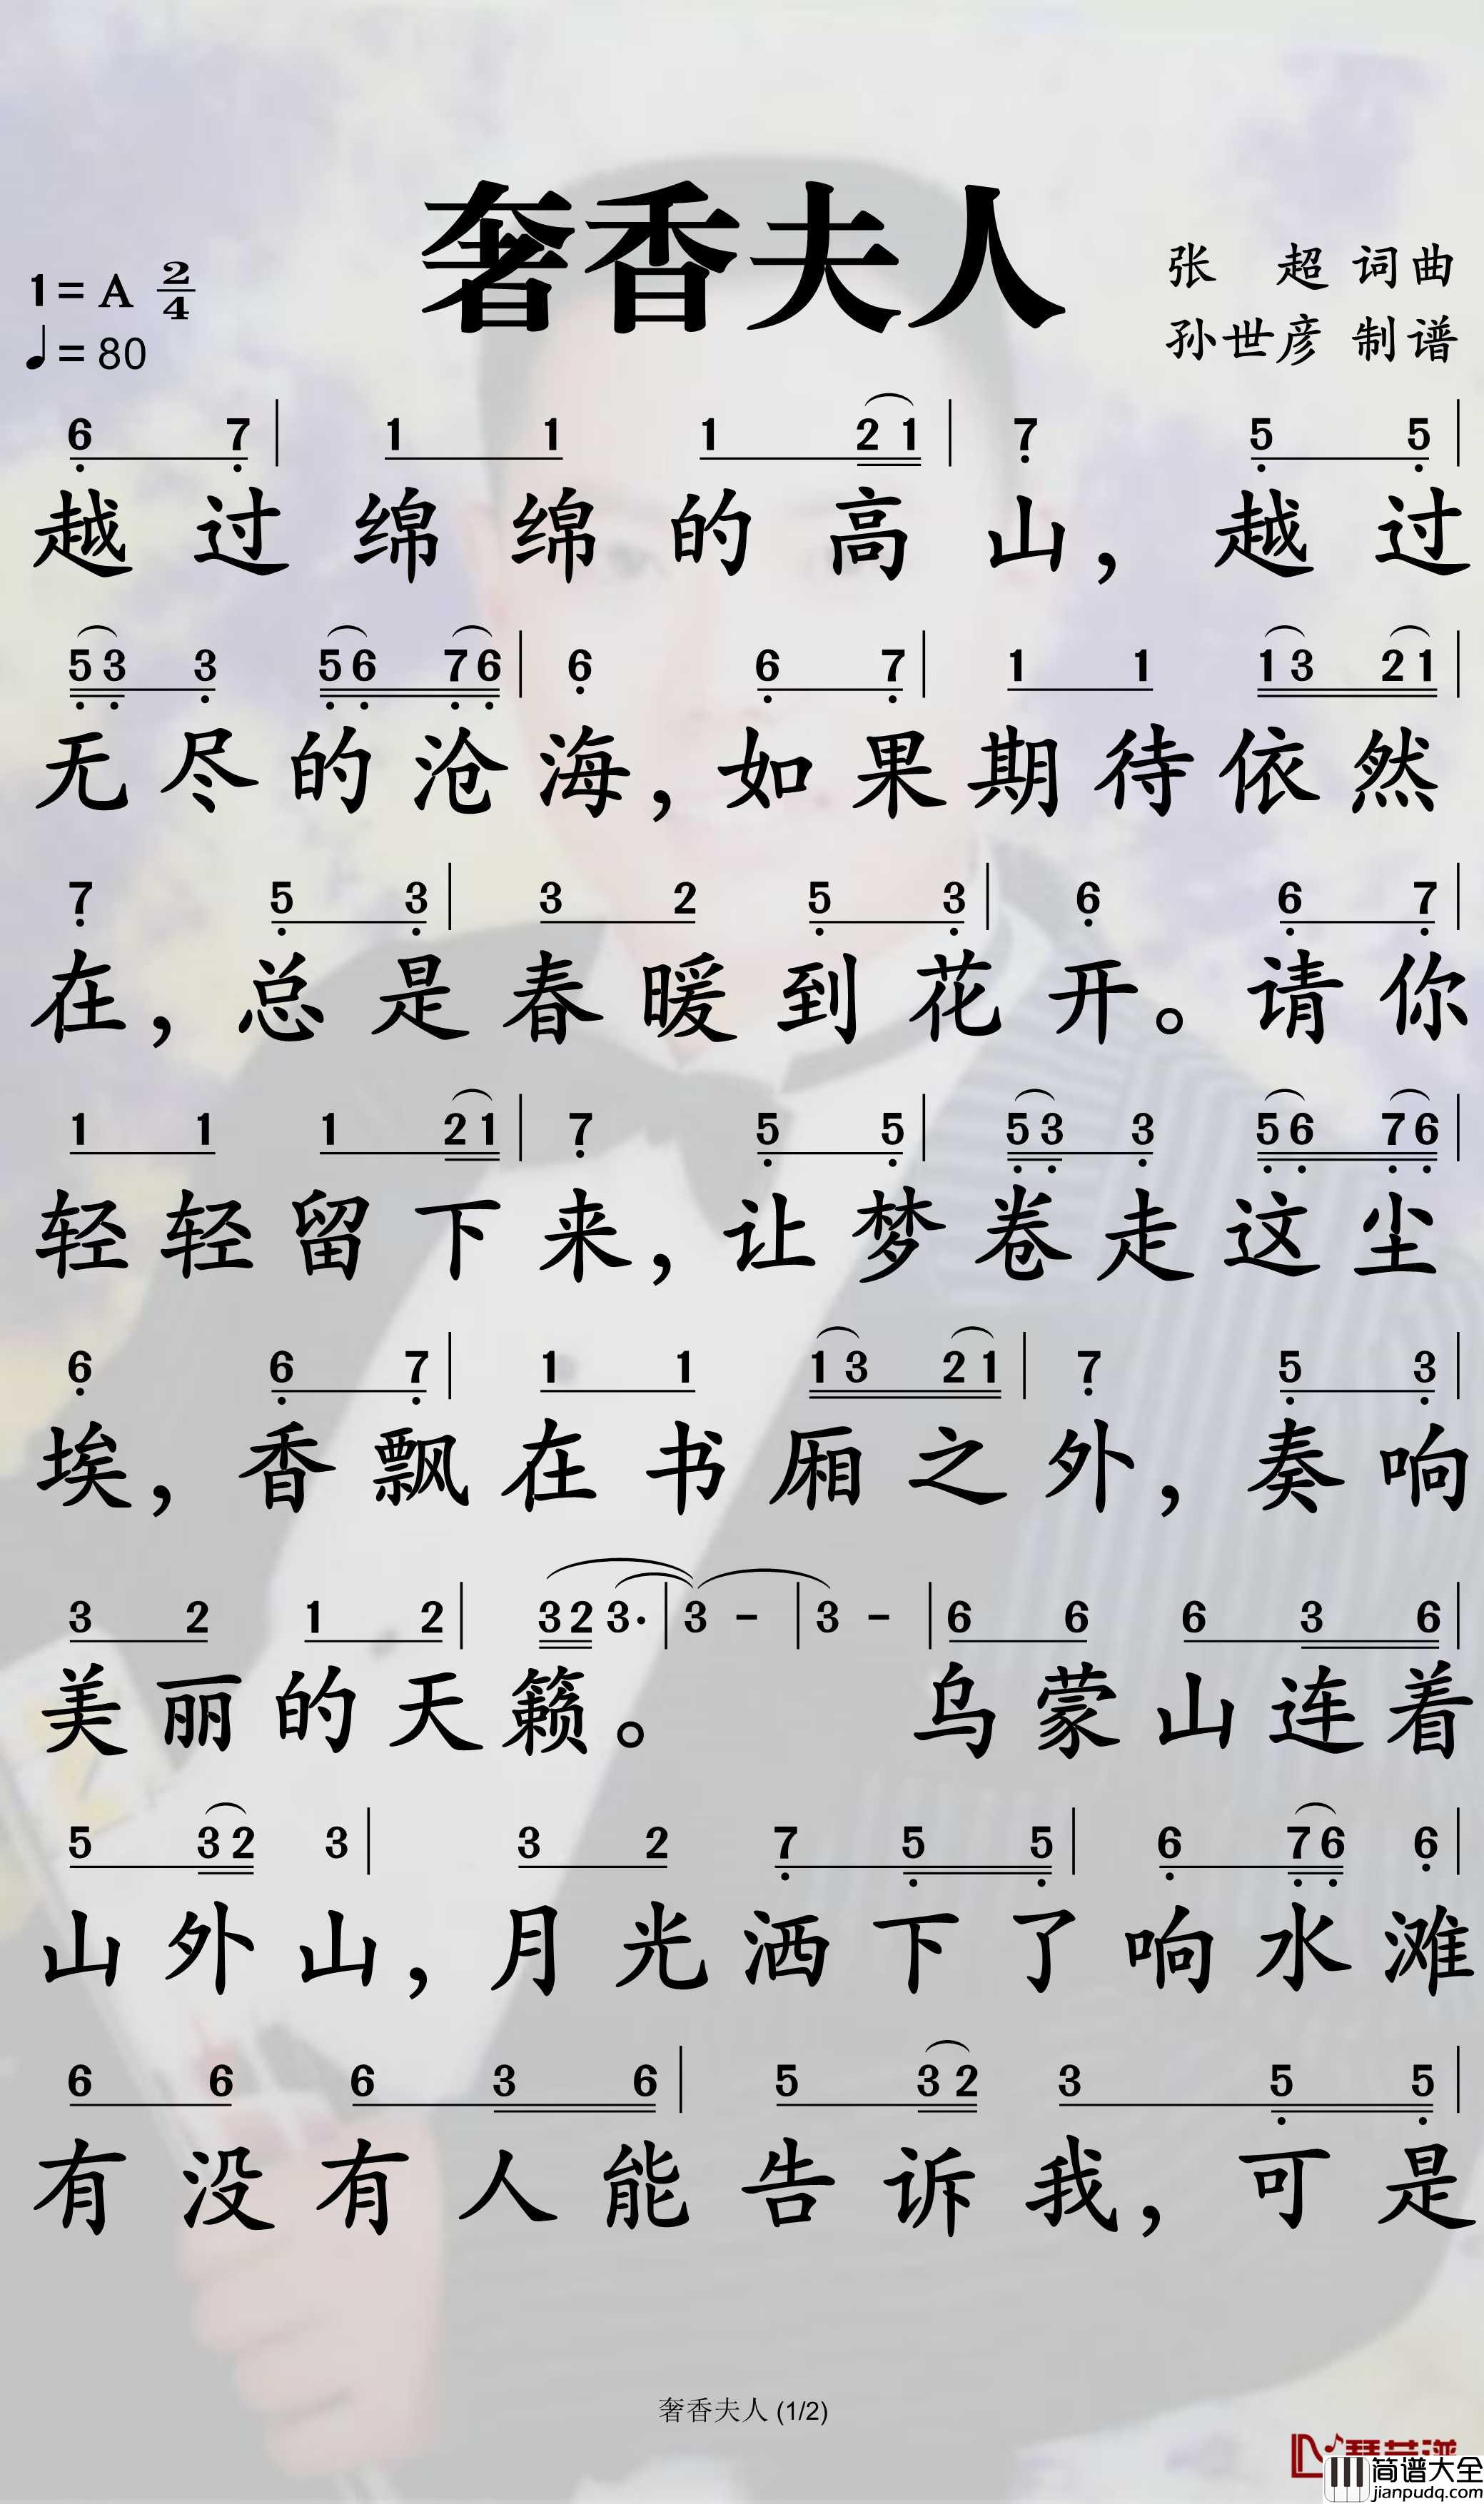 奢香夫人
1= A 2/4
♩= 80
张 超 词曲
孙世彦 制谱
6 7 | 1 1 1 2 1 | 7 5 5 |
越过绵绵的高山，越过
5 3 3 5 6 7 6 | 6 6 7 | 1 1 1 3 2 1 |
无尽的沧海，如果期待依然
7 5 3 | 3 2 5 3 | 6 6 7 |
在，总是春暖到花开。请你
1 1 1 2 1 | 7 5 5 | 5 3 3 5 6 7 6 |
轻轻留下来，让梦卷走这尘
6 6 7 | 1 1 1 3 2 1 | 7 5 3 |
埃，香飘在书厢之外，奏响
3 2 1 2 | 3 2 3. | 3 - | 3 - | 6 6 6 3 6 |
美丽的天籁。 乌蒙山连着
5 3 2 3 | 3 2 7 5 5 | 6 7 6 6 |
山外山，月光洒下了响水滩
6 6 6 3 6 | 5 3 2 3 5 5 |
有没有人能告诉我，可是
奢香夫人 (1/2)
简谱大全
jianpudq.com